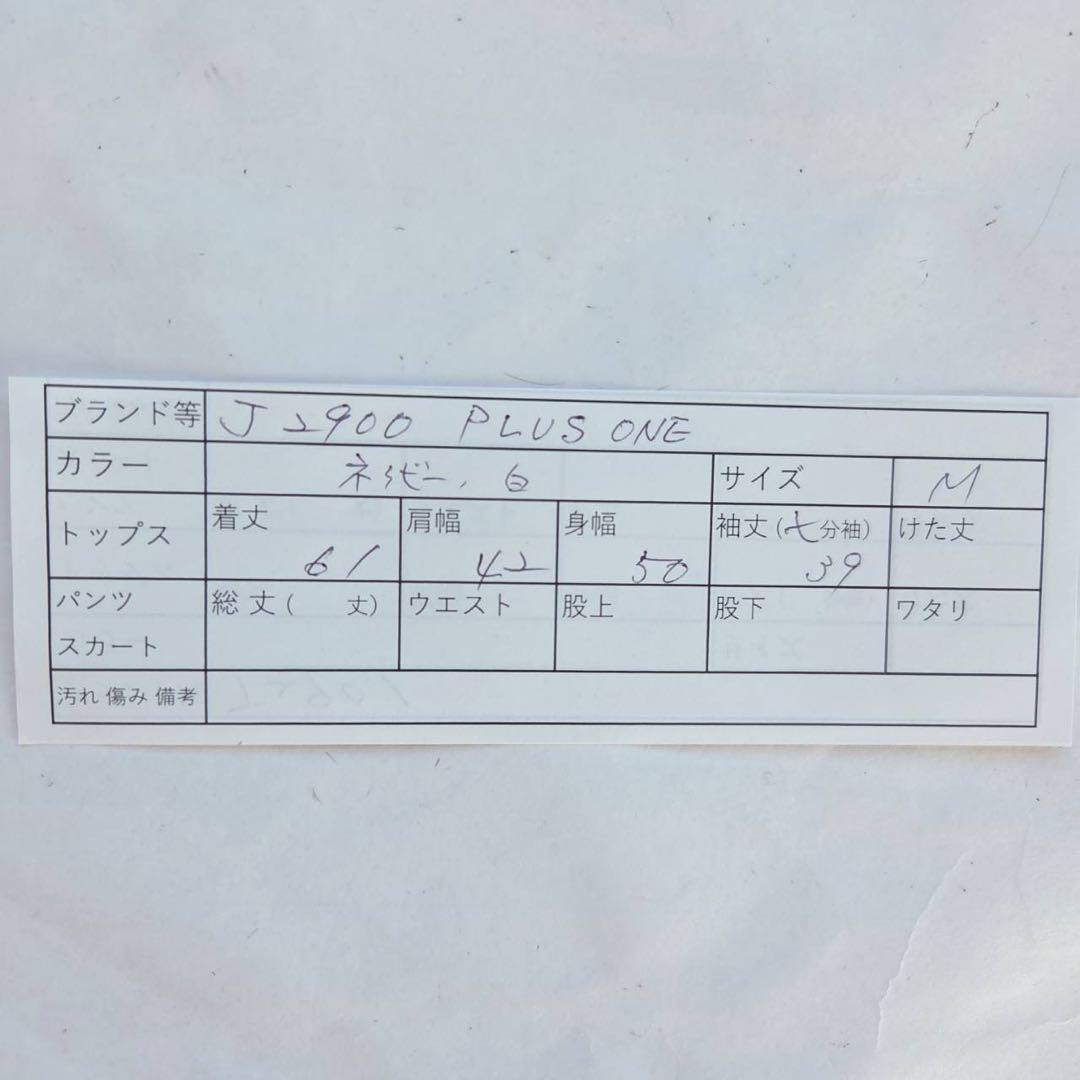 ブランド等 J2900 PLUS ONE
カラー ネイビー、白 サイズ M
トップス 着丈 61 肩幅 42 身幅 50 袖丈(七分袖) 39 けた丈
パンツ スカート 総丈( 丈) ウエスト 股上 股下 ワタリ
汚れ 傷み 備考